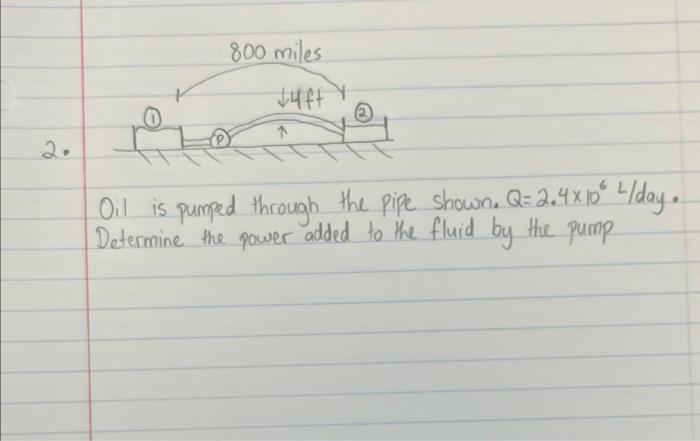 800 miles
↓4ft
① ②
2. P
Oil is pumped through the pipe shown. Q=2.4x10⁶ L/day.
Determine the power added to the fluid by the pump